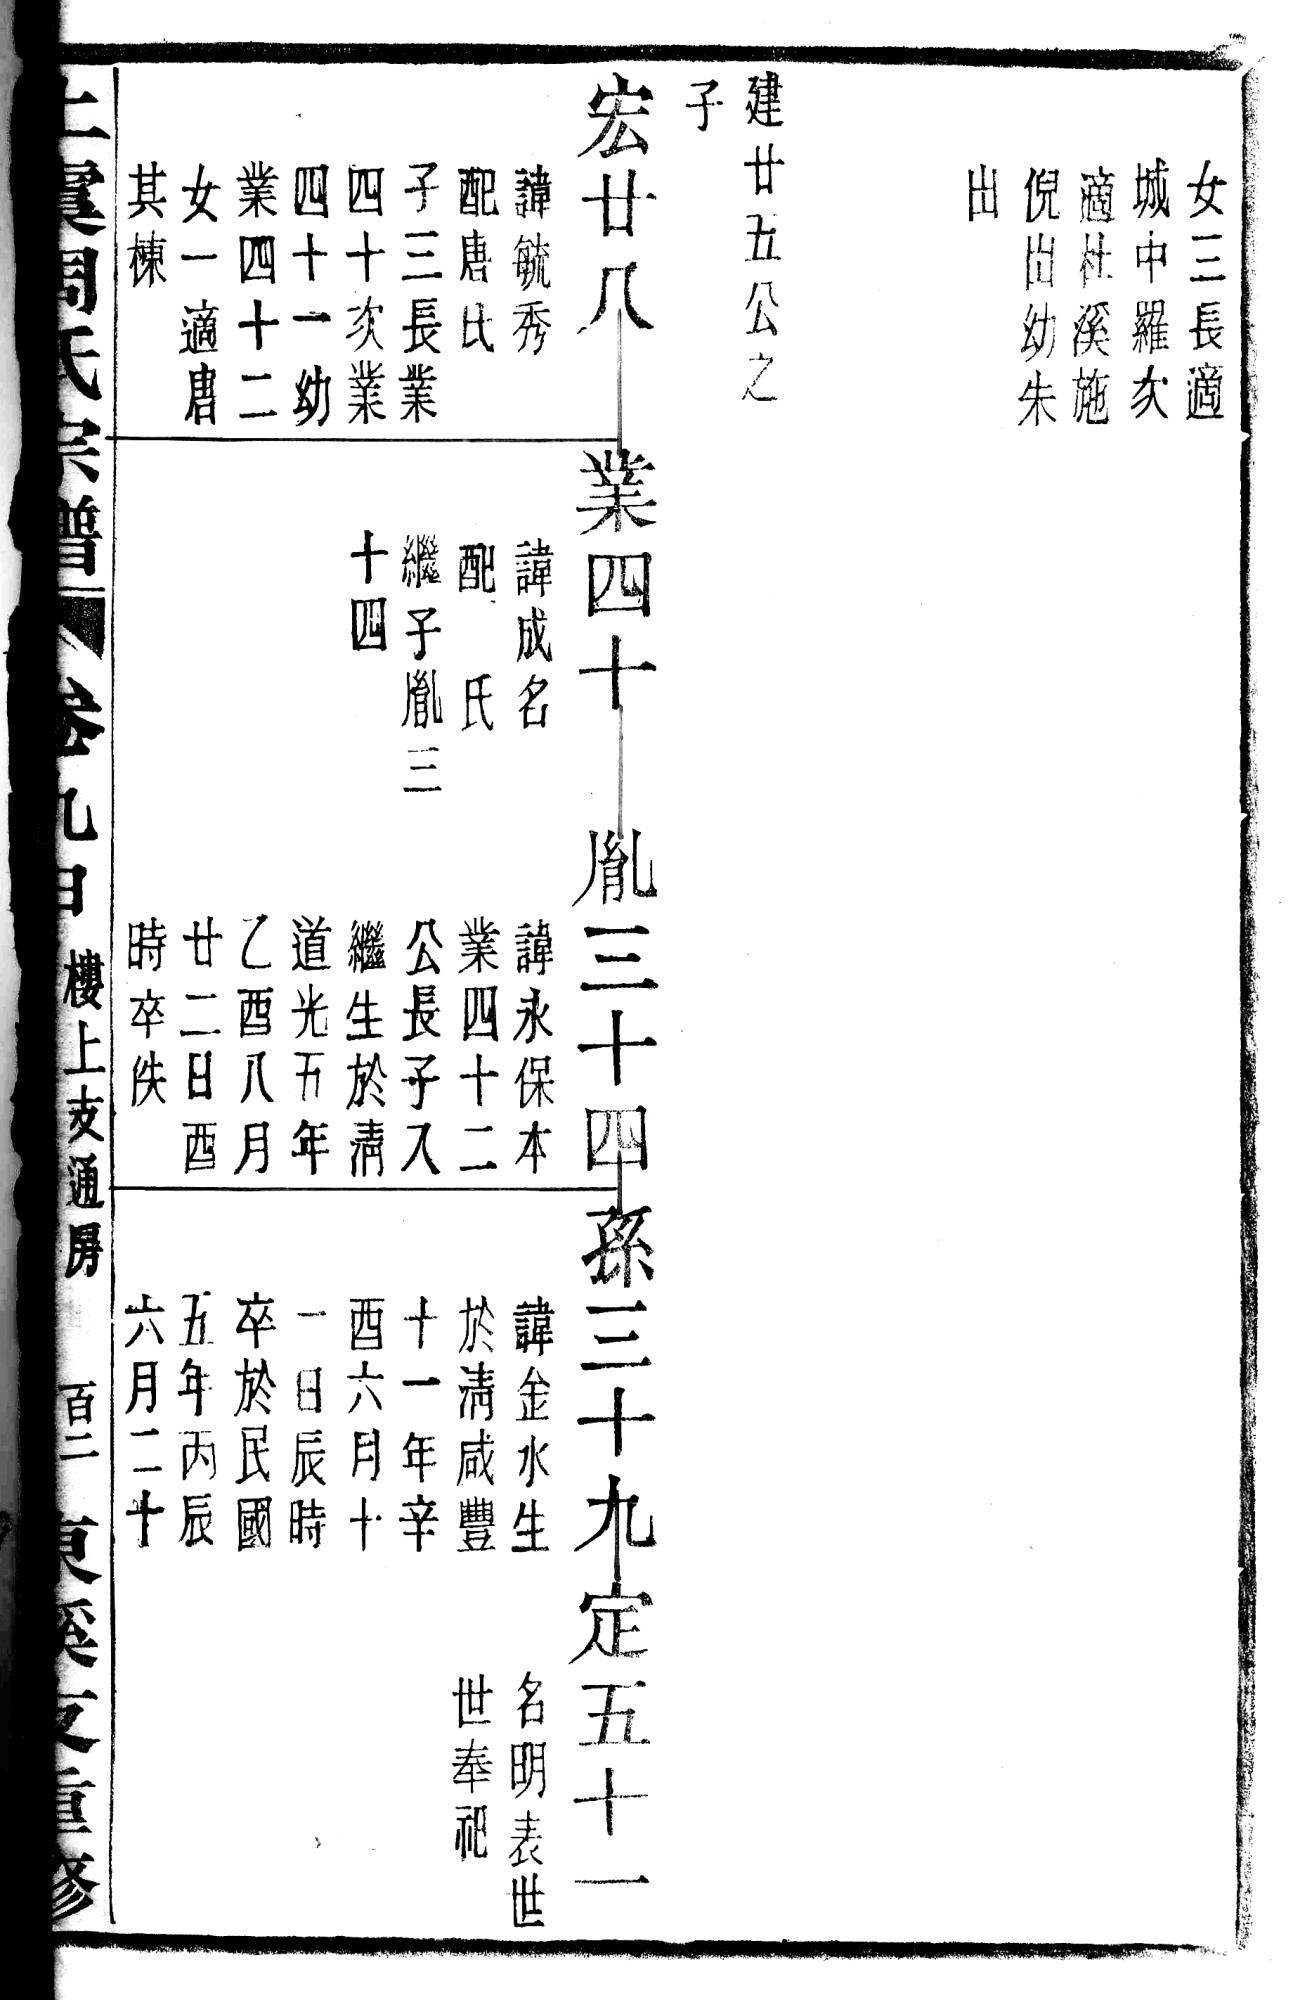 女三長適
城中羅次
適杜溪施
倪出幼朱
出
建廿五公之
子
宏廿八
諱毓秀
配唐氏
子三長業
四十次業
四十一幼
業四十二
女一適唐
其棟
業四十
諱成名
配 氏
繼子胤三
十四
胤三十四
諱永保本
業四十二
公長子入
繼生於清
道光五年
乙酉八月
廿二日酉
時卒佚
孫三十九
諱金水生
於清咸豐
十一年辛
酉六月十
一日辰時
卒於民國
五年丙辰
六月二十
定五十一
名明表世
世奉祀
上虞周氏宗譜 卷九中 樓上支通房 百二 東溪支重修